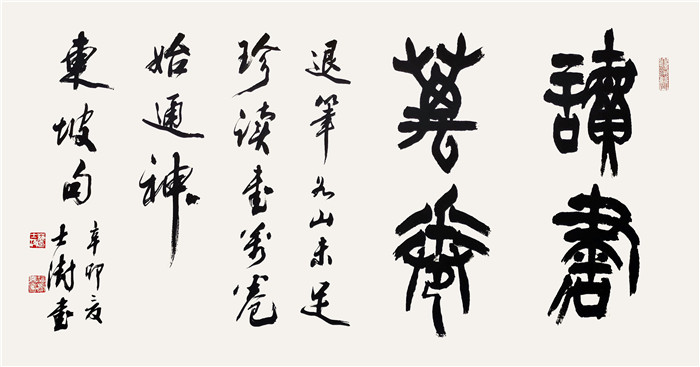 讀書
萬卷
退筆如山未足
珍讀書萬卷
始通神
東坡句
辛卯夏
士澍書